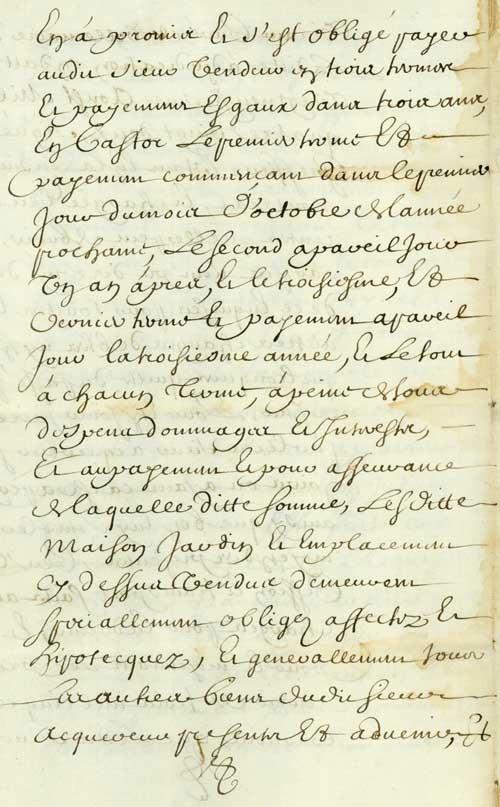 En a promis Et s'est obligé payer
audit sieur Vendeur en trois termes
Et payemens Esgaux dans trois ans,
En Castor Le premier terme Et
payement commencant dans le premier
Jour du mois D'octobre de l'année
prochaine, Le second a pareil Jour
Un an apres, Et le troisiesme, Et
dernier terme Et payement a pareil
Jour la troisiesme année, Et Le tout
à chacun Terme, à peine de tous
despens dommages Et Interests,
Et au payement Et pour asseurance
de laquelle ditte somme, Les ditte
Maison Jardin Et Emplacement
Cy dessus Vendus demeurent
speciallement obligez affectez Et
hipotecquez, Et generallement tous
les autres biens dudit sieur
acquereur presents Et advenir,